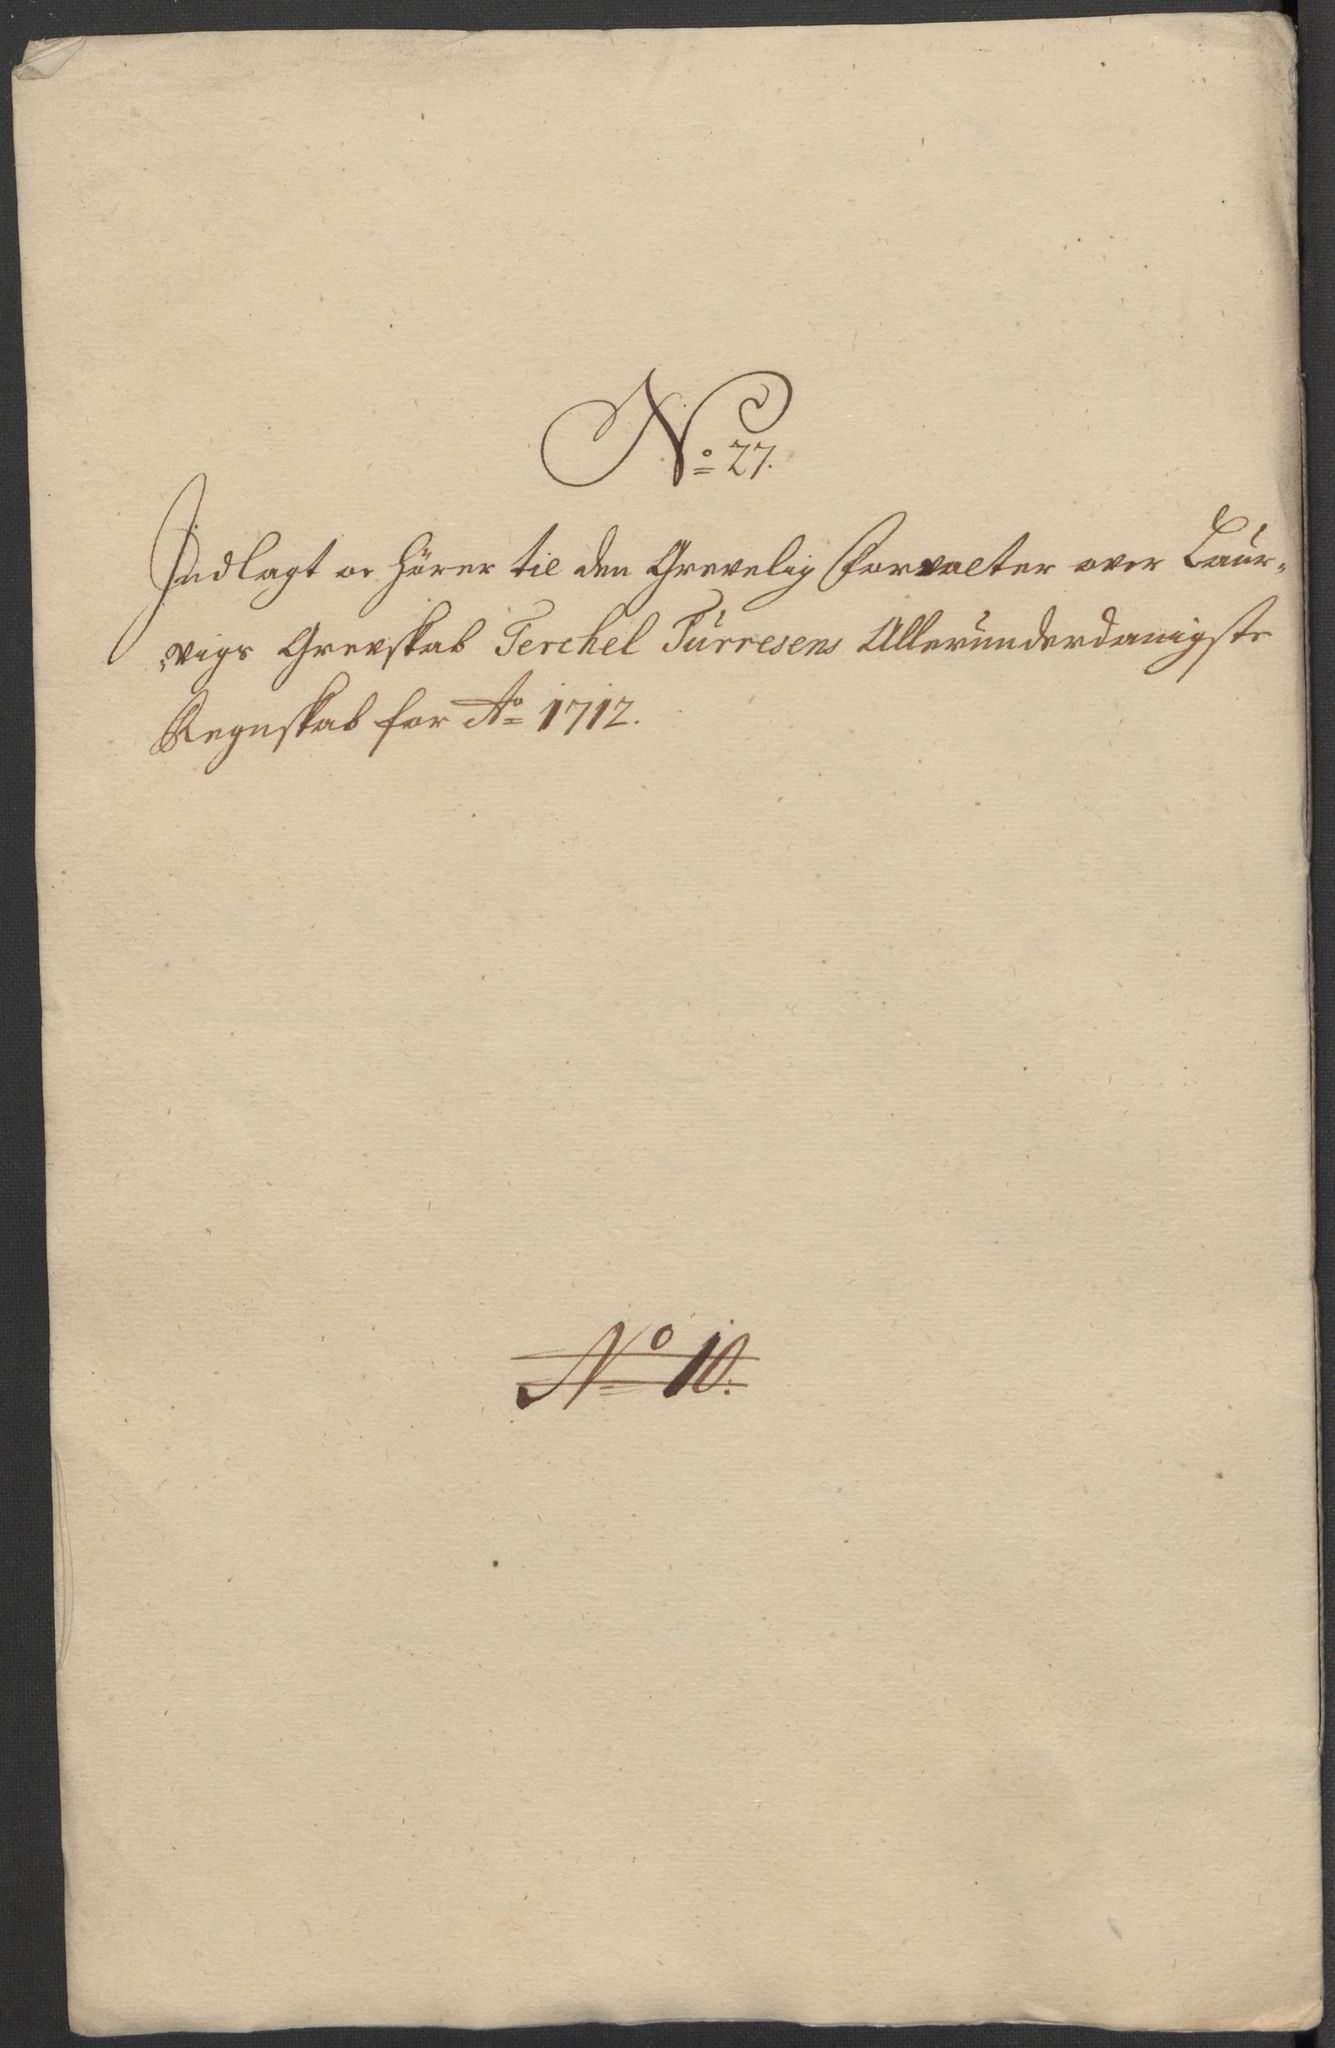 No 27.
Indlagt oc hörer til den Grevelig Forvalter over Laur-
vigs Grevskab Terchel Turresens Allerunderdanigste
Regnskab for Ao 1712.
No 10.